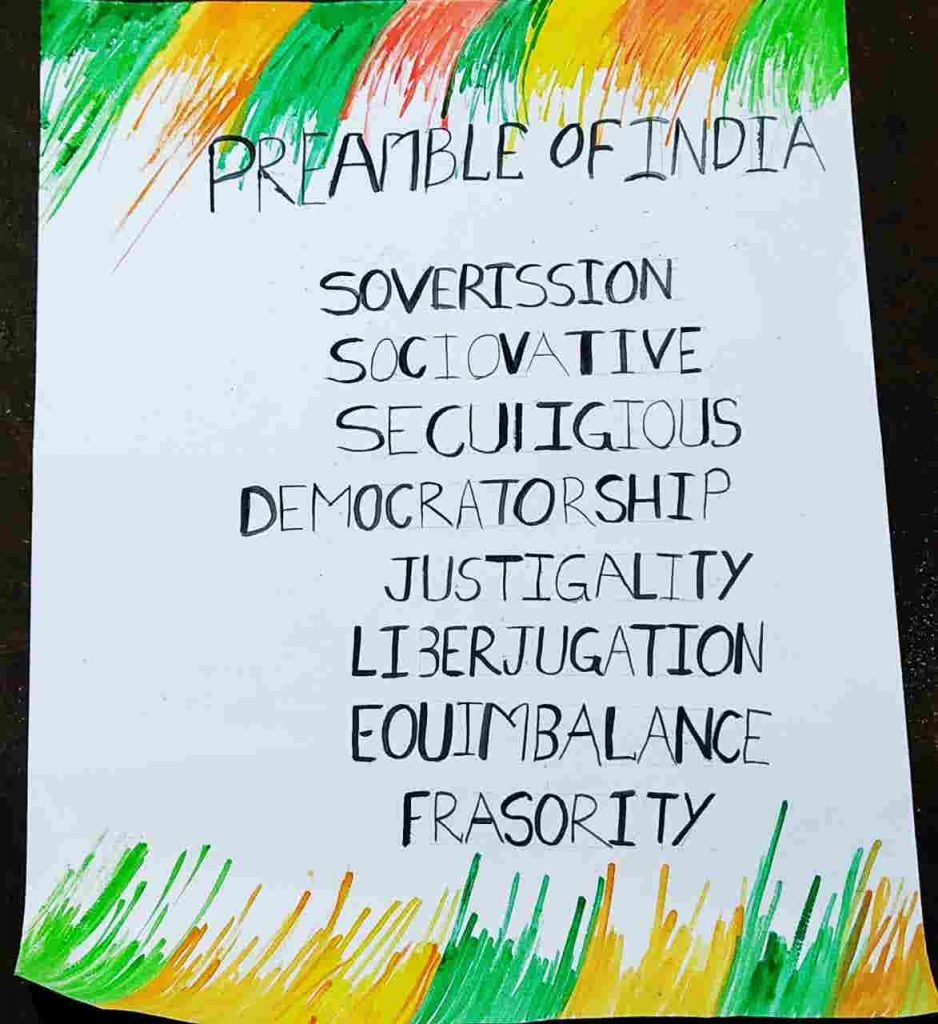 PREAMBLE OF INDIA
SOVERISSION
SOCIOVATIVE
SECULIGIOUS
DEMOCRATORSHIP
JUSTIGALITY
LIBERJUGATION
EQUIMBALANCE
FRASORITY